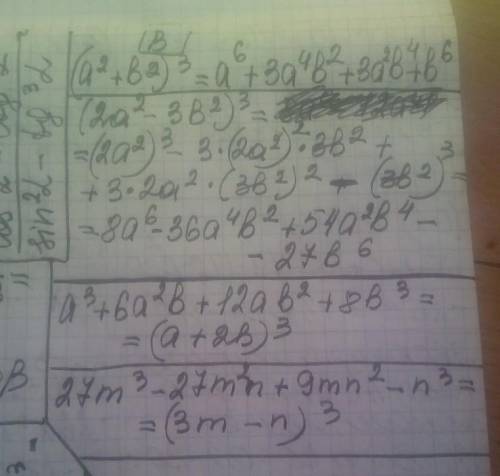 |B|
(a² + b²)³ = a⁶ + 3a⁴b² + 3a²b⁴ + b⁶
(2a² - 3b²)³ =
= (2a²)³ - 3·(2a²)²·3b² +
+ 3·2a²·(3b²)² - (3b²)³ =
= 8a⁶ - 36a⁴b² + 54a²b⁴ -
- 27b⁶
a³ + 6a²b + 12ab² + 8b³ =
= (a + 2b)³
27m³ - 27m²n + 9mn² - n³ =
= (3m - n)³